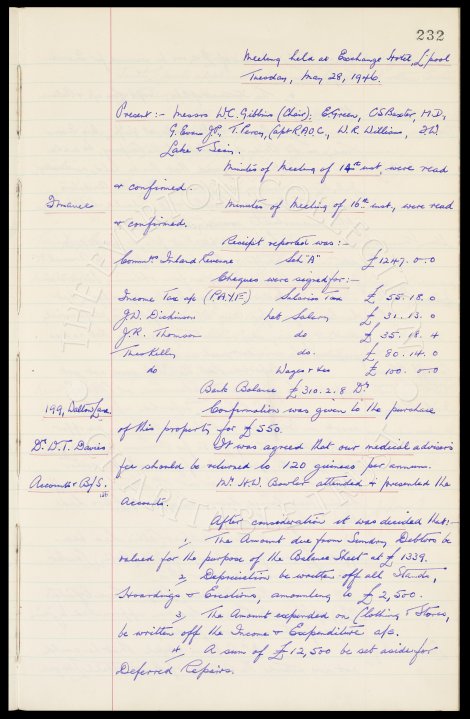 232
Meeting held at Exchange Hotel, L'pool
Tuesday, May 28, 1946.
Present :- Messrs W.C. Gibbins (Chair). E. Green, C.S. Baxter, M.D.,
G. Evans J.P., T. Percy, Capt R.A.O.C., W.R. Williams, J.W.
Lake &
Minutes of Meeting of 14th inst, were read
& confirmed.
Finances Minutes of Meeting of 16th inst, were read
& confirmed.
Receipt reported was :-
Commrs Inland Revenue Sch "A" £1247. 0. 0
Cheques were signed for :-
Income Tax a/c (P.A.Y.E.) Salaries Tax £ 55. 18. 0
J.W. Dickinson nett Salary £ 31. 13. 0
J.R. Thomson do £ 35. 18. 4
Theo Kelly do. £ 80. 14. 0
do Wages & £ 100. 0. 0
Bank Balance £310. 2. 8 Dr.
199, Dalton Lane Confirmation was given to the purchase
of this property for £550.
Dr. D.T. Davies It was agreed that our medical advisor's
fee should be returned to 120 guineas per annum.
Accounts & B/S. Mr. H.W. Bowler attended & presented the
Accounts.
After consideration it was decided that :-
1, The Amount due from Sundry Debtors be
valued for the purpose of the Balance Sheet at £1339.
2, Depreciation be written off all Stands,
Hoardings & Erections, amounting to £2,500.
3, The Amount expended on Clothing & Stores,
be written off the Income & Expenditure a/c.
4, A sum of £12,500 be set aside for
Deferred Repairs.
THE EVERTON COLLECTION
CHARITABLE TRUST